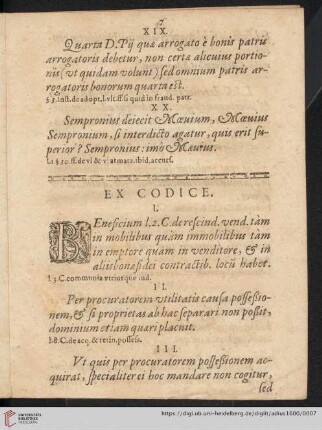 XIX.
Quarta D. Pij quæ arrogato è bonis patris
arrogatoris debetur, non certa alicuius portio-
nis (vt quidam volunt) sed omnium patris ar-
rogatoris bonorum quarta est.
§ 3. inst. de adopt. l. vlt. ff. si quid in fraud. patr.
XX.
Sempronius deiecit Mævium, Mævius
Sempronium, si interdicto agatur, quis erit su-
perior? Sempronius: imò Mævius.
EX CODICE.
I.
BEneficium l. 2. C. de rescind. vend. tàm
in mobilibus quàm immobilibus tàm
in emptore quàm in venditore, & in
alijs bonæ fidei contractib. locū habet.
l. 3. C. communia vtriusque iud.
II.
Per procuratorem vtilitatis causa possessio-
nem, & si proprietas ab hac separari non possit,
dominium etiam quæri placuit.
l. 8. C. de acq. & retin. possess.
III.
Vt quis per procuratorem possessionem ac-
quirat, specialiter ei hoc mandare non cogitur,
sed
https://digi.ub.uni-heidelberg.de/diglit/adius1600/0007
UNIVERSITÄTS-
BIBLIOTHEK
HEIDELBERG